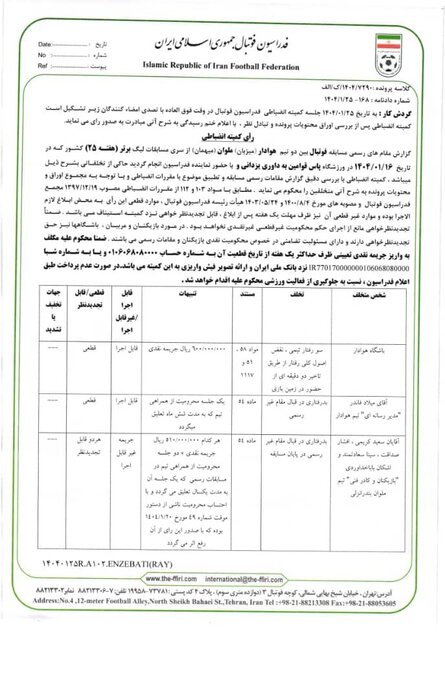 فدراسیون فوتبال جمهوری اسلامی ایران
Islamic Republic of Iran Football Federation
تاریخ :Date
شماره :No
پیوست :Ref
کلاسه پرونده : ۱۴۰۴/۷۲۹۰/ک/الف
شماره دادنامه : ۱۶۸-۱۴۰۴/۱/۲۵
گردش کار : به تاریخ ۱۴۰۴/۰۱/۲۵ جلسه کمیته انضباطی فدراسیون فوتبال در وقت فوق العاده با تصدی امضاء کنندگان زیر تشکیل است
کمیته انضباطی پس از بررسی اوراق محتویات پرونده و تبادل نظر ، با اعلام ختم رسیدگی به شرح آتی مبادرت به صدور رای می نماید.
رأی کمیته انضباطی
گزارش مقام های رسمی مسابقه فوتبال بین دو تیم هوادار (میزبان) ملوان (میهمان) از سری مسابقات لیگ برتر (هفته ۲۵) کشور که در
تاریخ ۱۴۰۴/۰۱/۱۶ در ورزشگاه پاس قوامین به داوری یزدانی و با حضور نماینده فدراسیون انجام گردید حاکی از تخلفاتی بشرح ذیل
میباشد ، کمیته انضباطی با بررسی دقیق گزارش مقامات رسمی مسابقه و تطبیق موضوع با مقررات انضباطی و با توجه به مجموع اوراق و
محتویات پرونده به شرح آتی متخلفین را محکوم می نماید. مطابق با مواد ۱۰۳ و ۱۱۲ از مقررات انضباطی مصوب ۱۳۹۷/۱۲/۱۹
فدراسیون فوتبال و مصوبه های مورخ ۱۴۰۰/۸/۴ و ۱۴۰۳/۵/۲۴ هیأت رئیسه فدراسیون فوتبال ، موارد قطعی این رأی به محض ابلاغ لازم
الاجرا بوده و موارد غیر قطعی آن نیز ظرف مهلت یک هفته پس از ابلاغ ، قابل تجدیدنظر خواهی نزد کمیته استیناف می باشد. ضمناً
تجدیدنظرخواهی مانع از اجرای حکم محکومیت غیرقطعی غیرنقدی نخواهد بود. در مورد بازیکنان و مربیان ، باشگاهها نیز حق
تجدیدنظرخواهی دارند و دارای مسئولیت تضامنی در خصوص محکومیت نقدی بازیکنان و مقامات رسمی می باشند. ضمناً محکوم علیه مکلف
به واریز جریمه نقدی تعیینی ظرف حداکثر یک هفته از تاریخ قطعیت آن به شماره حساب ۰۱۰۶۰۶۸۰۸۰۰۰۰ و به شماره شبا
IR770170000000106068080000 نزد بانک ملی ایران و ارائه تصویر فیش واریزی به این کمیته می باشد. در صورت عدم پرداخت طبق
اعلام فدراسیون ، نسبت به جلوگیری از فعالیت ورزشی محکوم علیه اقدام خواهد شد.
شخص متخلف | تخلف | مستند | تنبیهات | قابل اجرا /غیرقابل اجرا | قطعی/قابل تجدیدنظر | جهات تخفیف یا تشدید
باشگاه هوادار | سو رفتار تیمی ، نقض اصول کلی رفتار از طریق تاخیر دو دقیقه ای از حضور در زمین بازی | مواد ۵۸ ، ۵۱ و ۱۱۱۷ | ۶۰۰/۰۰۰/۰۰۰ ریال جریمه نقدی | قابل اجرا | قطعی | ----
آقای میلاد قائدر "مدیر رسانه ای" تیم هوادار | بدرفتاری در قبال مقام غیر رسمی | ماده ۵۴ | یک جلسه محرومیت از همراهی تیم که به مدت شش ماه تعلیق میگردد | قابل اجرا | قطعی | ----
آقایان سعید کریمی ، افشار صداقت ، سینا سعادتمند و اشکان باباخدادوردی "بازیکنان و کادر فنی" تیم ملوان بندرانزلی | بدرفتاری در قبال مقام غیر رسمی در پایان مسابقه | ماده ۵۴ | هر کدام ۵۱۰/۰۰۰/۰۰۰ ریال جریمه نقدی + دو جلسه محرومیت از همراهی تیم در مسابقات رسمی که یک جلسه آن به مدت یکسال تعلیق می گردد و با احتساب محرومیت ناشی از دستور موقت شماره ۴۹ مورخ ۱۴۰۴/۱/۲۰ بوده که با صدور این رای از آن رفع اثر می گردد | جریمه غیر قابل اجرا | هردو قابل تجدیدنظر | ----
۱۴۰۴۰۱۲۵R.A۱۰۲.ENZEBATI(RAY)
www.the-ffiri.com international@the-ffiri.com
آدرس:تهران ، خیابان شیخ بهایی شمالی، کوچه فوتبال ۳ (دوازده متری سوم) ، پلاک ۴ کد پستی: ۷۳۷۸۱-۱۹۹۵۸ تلفن: ۷-۸۸۲۱۳۳۰۶ نمابر: ۸۸۲۱۳۳۰۲
Address:No.4 ,12-meter Football Alley,North Sheikh Bahaei St.,Tehran, Iran Tel :+98-21-88213308 Fax:+98-21-88053605